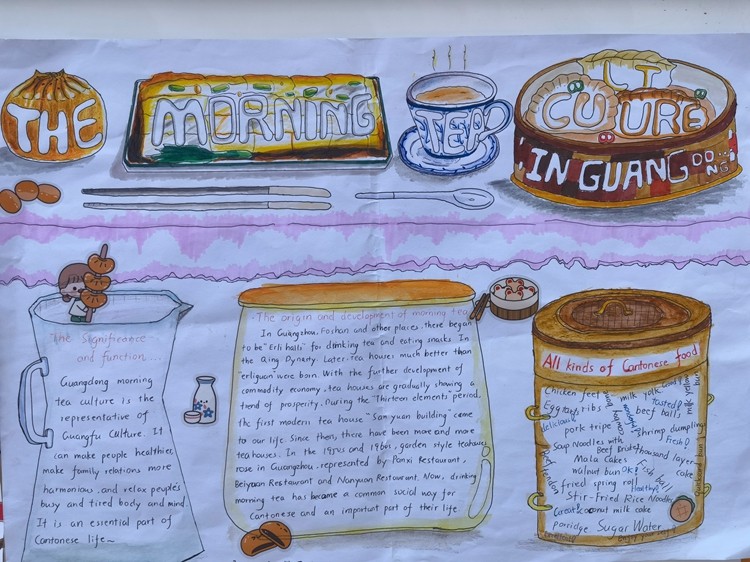 THE MORNING TEA CULTURE
IN GUANGDONG
The Significance
and function...
Guangdong morning
tea culture is the
representative of
Guangfu Culture. It
can make people healthier,
make family relations more
harmonious, and relax people's
busy and tired body and mind.
It is an essential part of
Cantonese life~
The origin and development of morning tea
In Guangzhou, Foshan and other places, there began
to be "Erli halls" for drinking tea and eating snacks In
the Qing Dynasty. Later, tea houses much better than
"erliguan" were born. With the further development of
commodity economy, tea houses are gradually showing a
trend of prosperity. During the "Thirteen elements" period,
the first modern tea house "Sanyuan building" came
to our life. Since then, there have been more and more
tea houses. In the 1950s and 1960s, garden style teahouses
rose in Guangzhou, represented by Panxi Restaurant,
Beiyuan Restaurant and Nanyuan Restaurant. Now, drinking
morning tea has become a common social way for
Cantonese and an important part of their life
All kinds of Cantonese food
Chicken feet
milk
yolk
Good!
Egg
ribs
beef balls
Tasted!
pork tripe
shrimp dumplings
Fresh!
Soup Noodles with
Beef Brisket
thousand layer
cake
Mala Cakes
walnut bun
OK!
Fish ball
fried spring roll
Healthy!
Stir-Fried Rice Noodles
Great!
coconut milk cake
porridge
Sugar Water